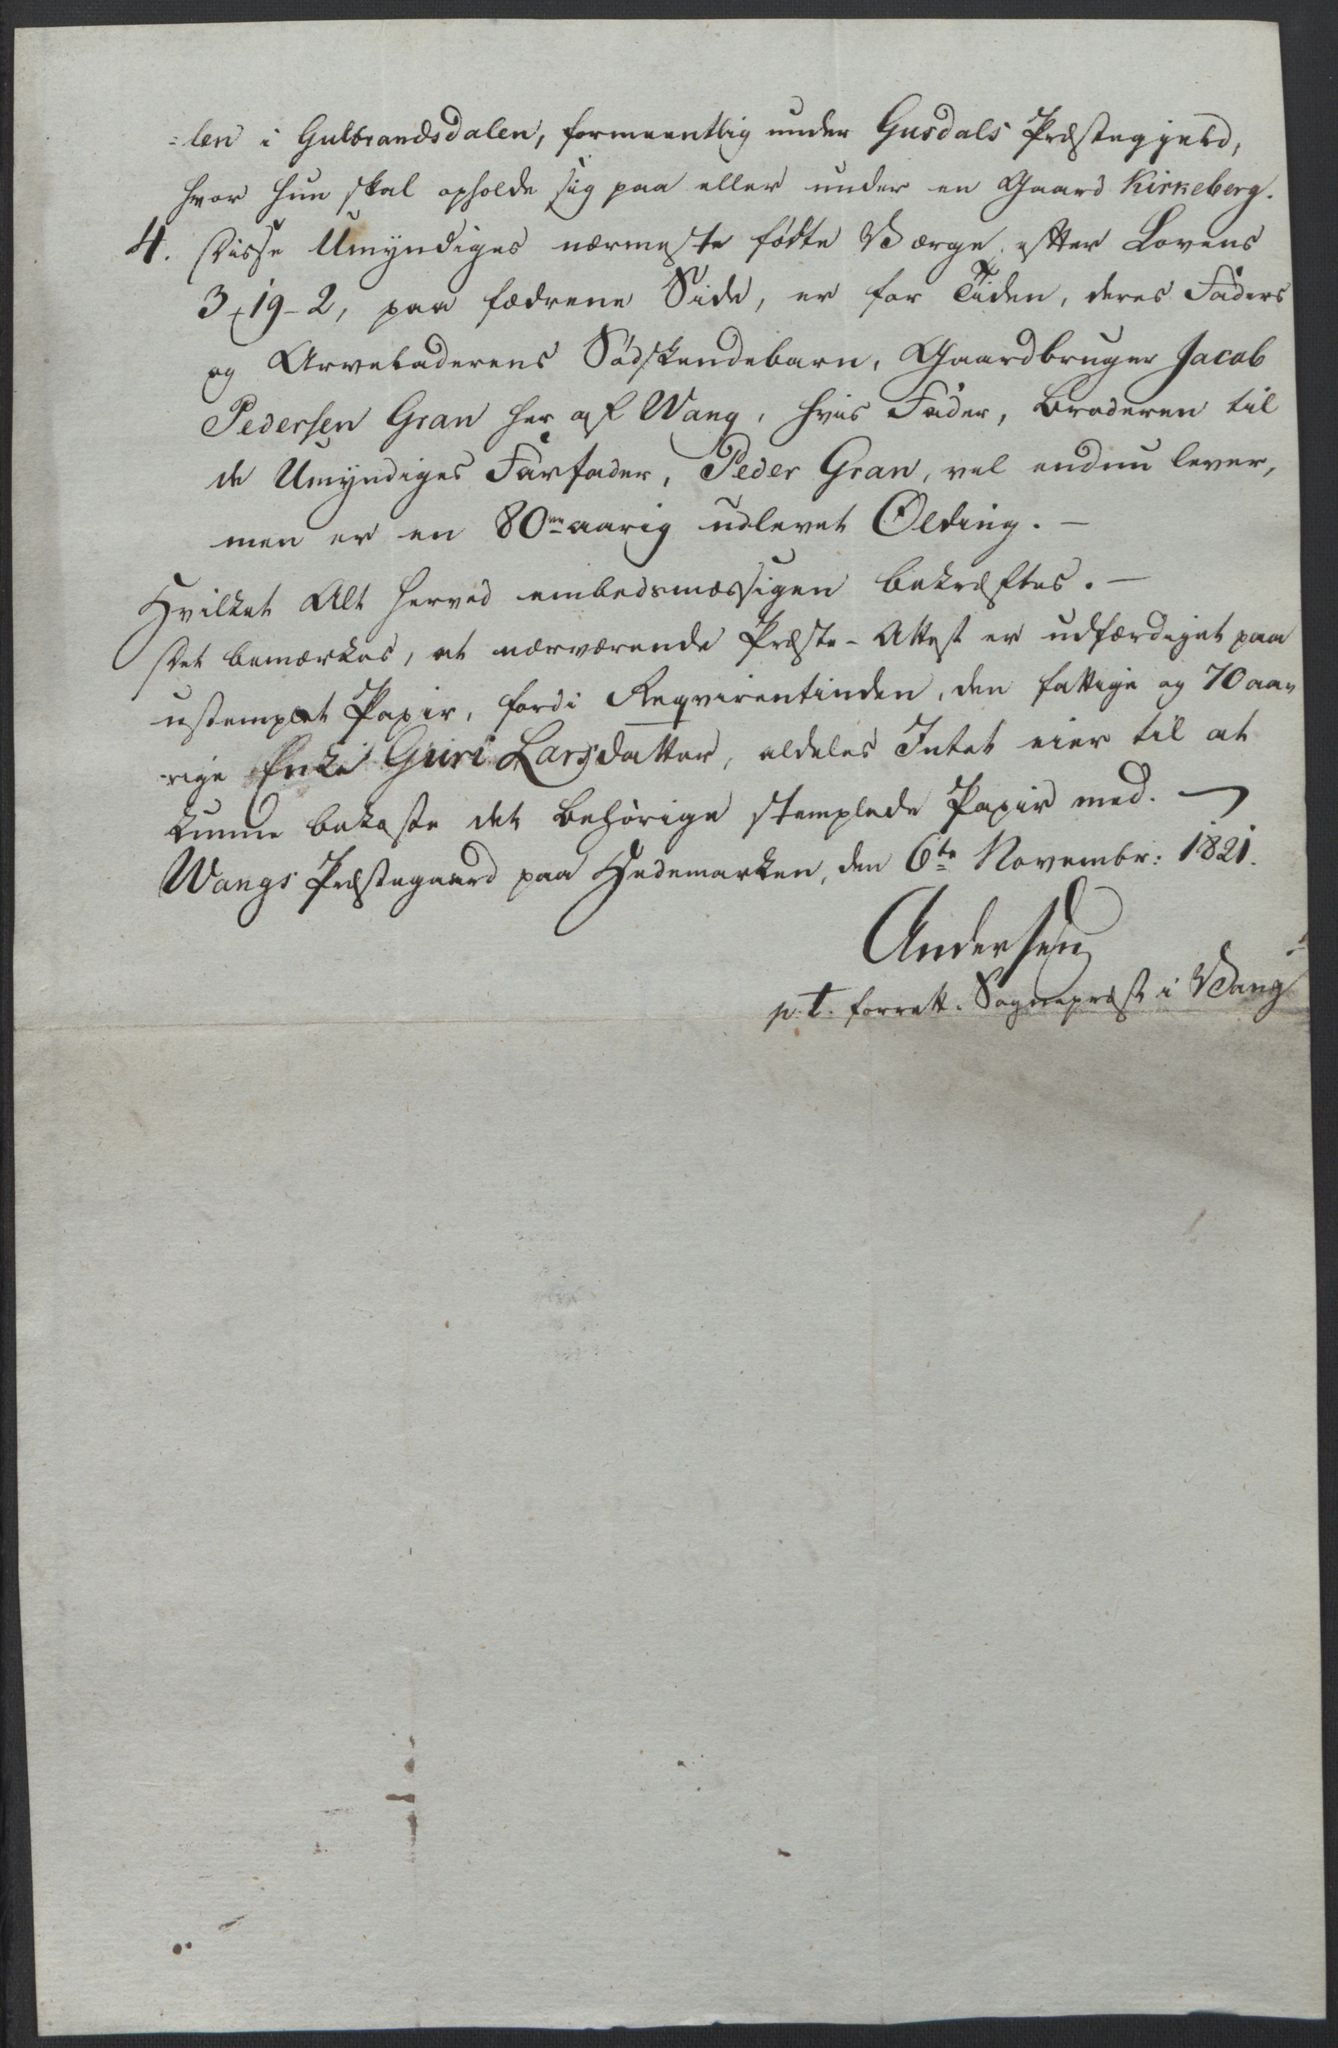 -len i Gulbrandsdalen, formeentlig under Gusdals Præstegjeld,
hvor hun skal opholde sig paa eller under en Gaard Kirkeberg.
4. Disse Umyndiges nærmeste fødte Værge, efter Lovens
3-19-2, paa fædrene Side, er for Tiden, deres Faders
og Arveladerens Södskendebarn, Gaardbruger Jacob
Pedersen Gran her af Wang, hvis Fader, Broderen til
de Umyndiges Farfader, Peder Gran, vel endnu lever,
men er en 80 aarig udlevet Olding. —
Hvilket Alt herved embedsmæssigen bekræftes. —
Det bemærkes, at nærværende Præste-Attest er udfærdiget paa
ustemplet Papir, fordi Reqvirentinden, den fattige og 70 aa-
rige Enke Guri Larsdatter, aldeles Intet eier til at
kunne bekoste det behørige stemplede Papir med. —
Wangs Præstegaard paa Hedemarken, den 6te Novembr: 1821.
Andersen
p. t. forrett. Sognepræst i Vang